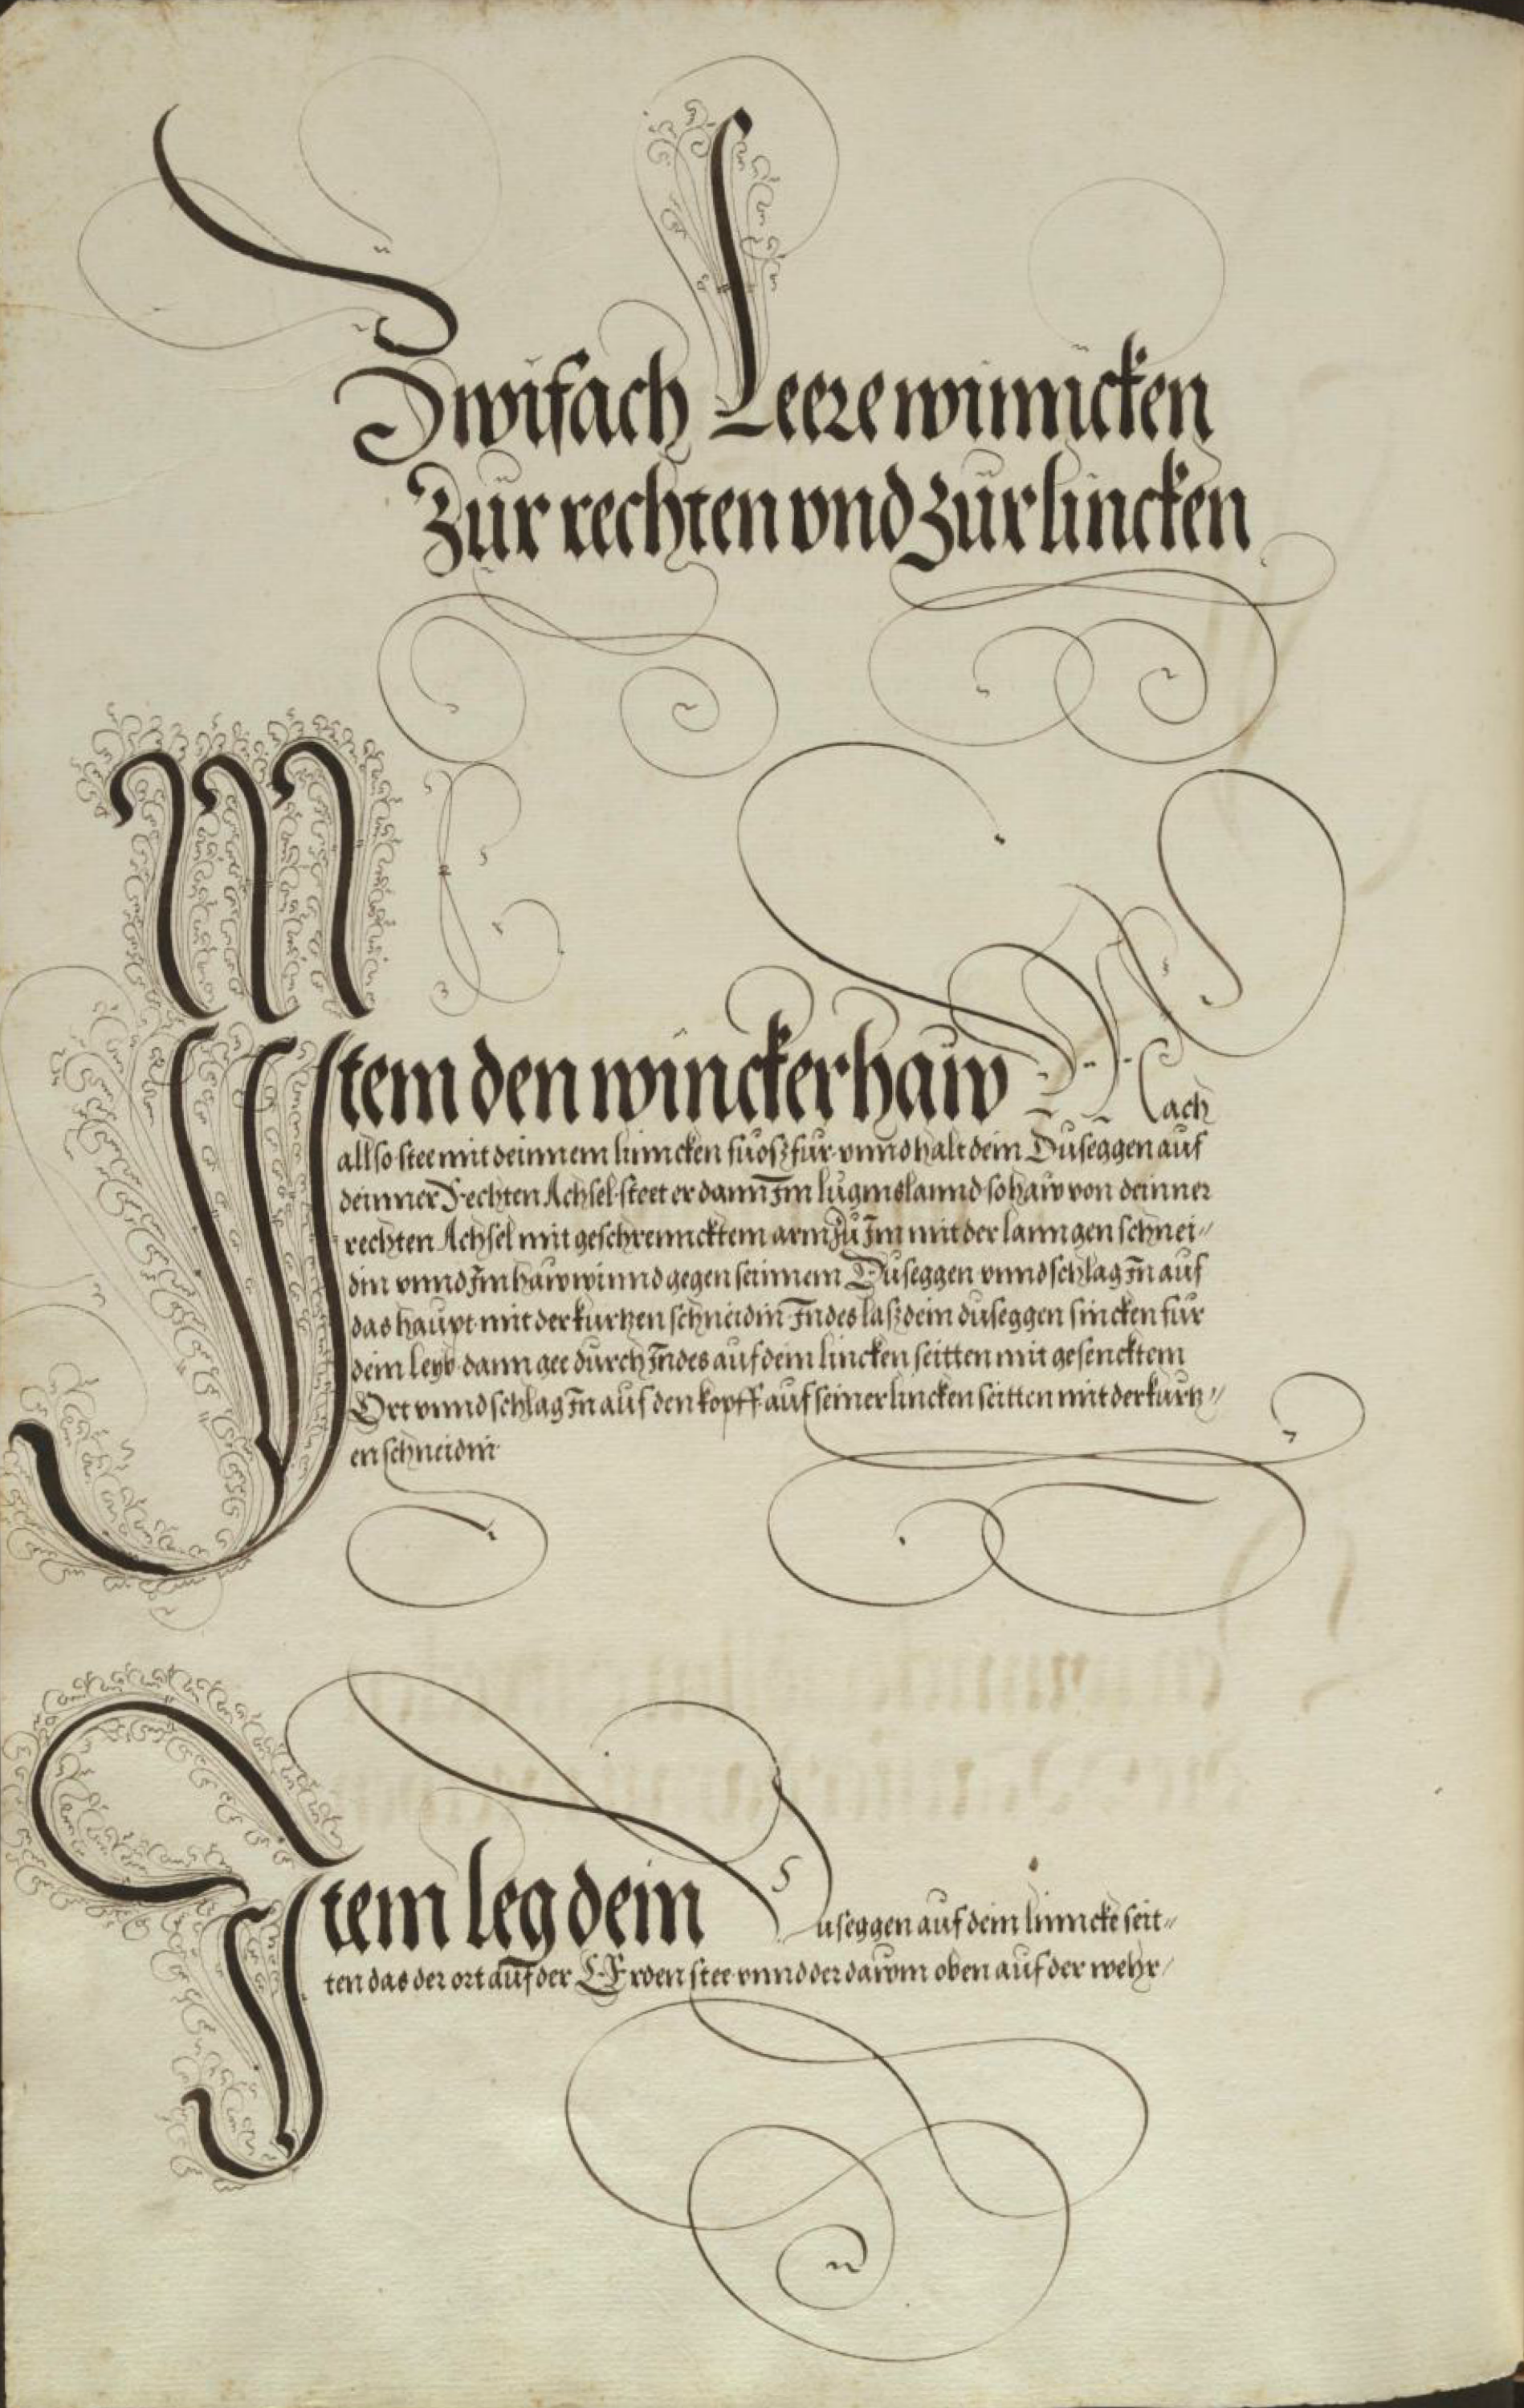 Zwifach Leere winncken
Zur rechten vnd zur lincken
Item den winckerhaw Mach
allso stee mit deinnem linncken fuosz fur vnnd halt dein Duseggen auf
deinner Rechten Achsel steet er dann Im luginslannd so haw von deinner
rechten Achsel mit geschrennckttem arm zu Im mit der lanngen schnei〃
din vnnd Im haw winnd gegen seinnem Duseggen vnnd schlag In auf
das haupt mit der kurtzen schneidin Indes lasz dein duseggen sincken fur
dein leyb dann gee durch Indes auf dein lincken seitten mit gesencktem
Ort vnnd schlag In auf den kopff auf seiner lincken seitten mit der kurtz〃
en schneidin
Item leg dein Duseggen auf dein linncke seit〃
ten das der ort auf der Erden stee vnnd der dawm oben auf der wehr